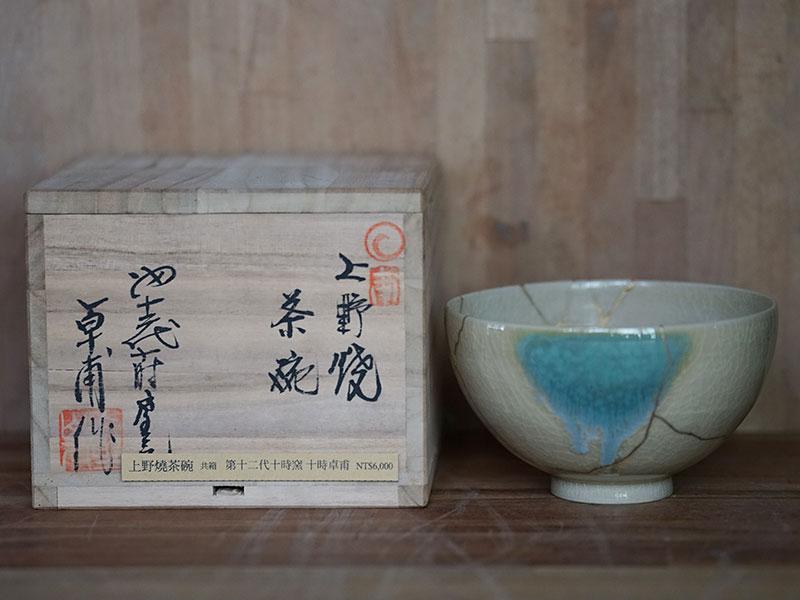 上野焼
茶碗
十時窯
卓甫作
上野燒茶碗 共箱 第十二代十時窯 十時卓甫 NT$6,000